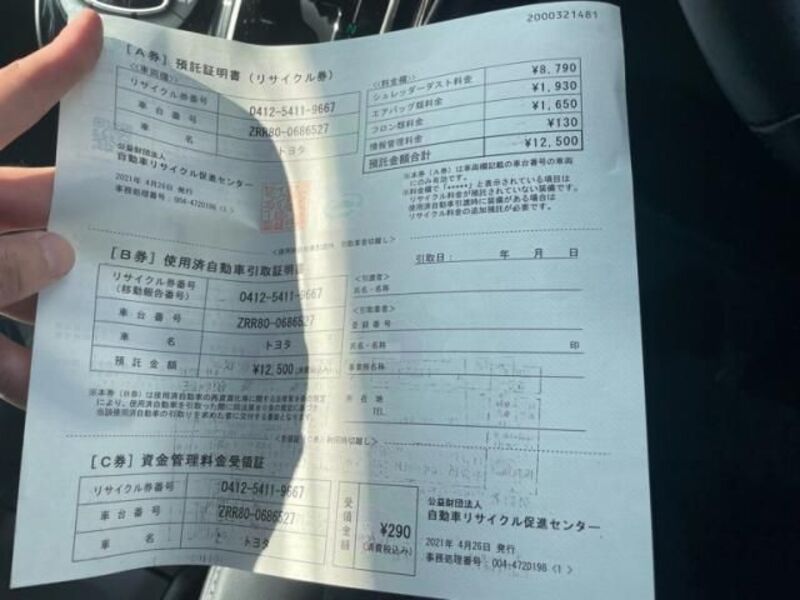 2000321481
[A券] 預託証明書 (リサイクル券)
<<車両欄>>
リサイクル券番号 0412-5411-9667
車台番号 ZRR80-0686527
車名 トヨタ
公益財団法人
自動車リサイクル促進センター
2021年 4月26日 発行
事務処理番号: 004-4720198 <1>
<<料金欄>>
シュレッダーダスト料金 ¥8,790
エアバッグ類料金 ¥1,930
フロン類料金 ¥1,650
情報管理料金 ¥130
預託金額合計 ¥12,500
※本券(A券)は車両欄記載の車台番号の車両
にのみ有効です。
※料金欄で「*****」と表示されている項目は
リサイクル料金が預託されていない装備です。
使用済自動車引渡時に装備がある場合は
リサイクル料金の追加預託が必要です。
[B券] 使用済自動車引取証明書
リサイクル券番号
(移動報告番号) 0412-5411-9667
車台番号 ZRR80-0686527
車名 トヨタ
預託金額 ¥12,500
引取日: 年 月 日
<引渡者>
氏名・名称
<引取業者>
登録番号
氏名・名称 印
事業所名称
所在地
TEL
[C券] 資金管理料金受領証
リサイクル券番号 0412-5411-9667
車台番号 ZRR80-0686527
車名 トヨタ
受領金額 ¥290
(消費税込み)
公益財団法人
自動車リサイクル促進センター
2021年 4月26日 発行
事務処理番号: 004-4720198 <1>